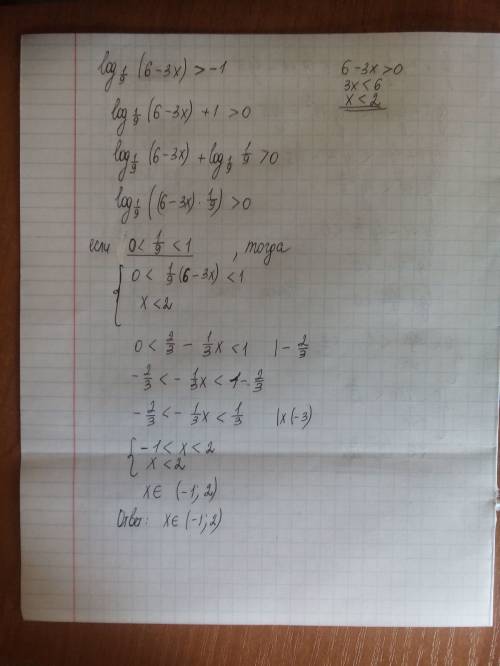 log_{1/9} (6-3x) > -1
6-3x>0
3x<6
x<2
log_{1/9} (6-3x) + 1 > 0
log_{1/9} (6-3x) + log_{1/9} 1/9 > 0
log_{1/9} ((6-3x) · 1/9) > 0
если 0 < 1/9 < 1 , тогда
{ 0 < 1/9 (6-3x) < 1
x < 2
0 < 2/3 - 1/3 x < 1 | - 2/3
- 2/3 < - 1/3 x < 1 - 2/3
- 2/3 < - 1/3 x < 1/3 | x (-3)
{ -1 < x < 2
x < 2
x ∈ (-1; 2)
Ответ: x ∈ (-1; 2)